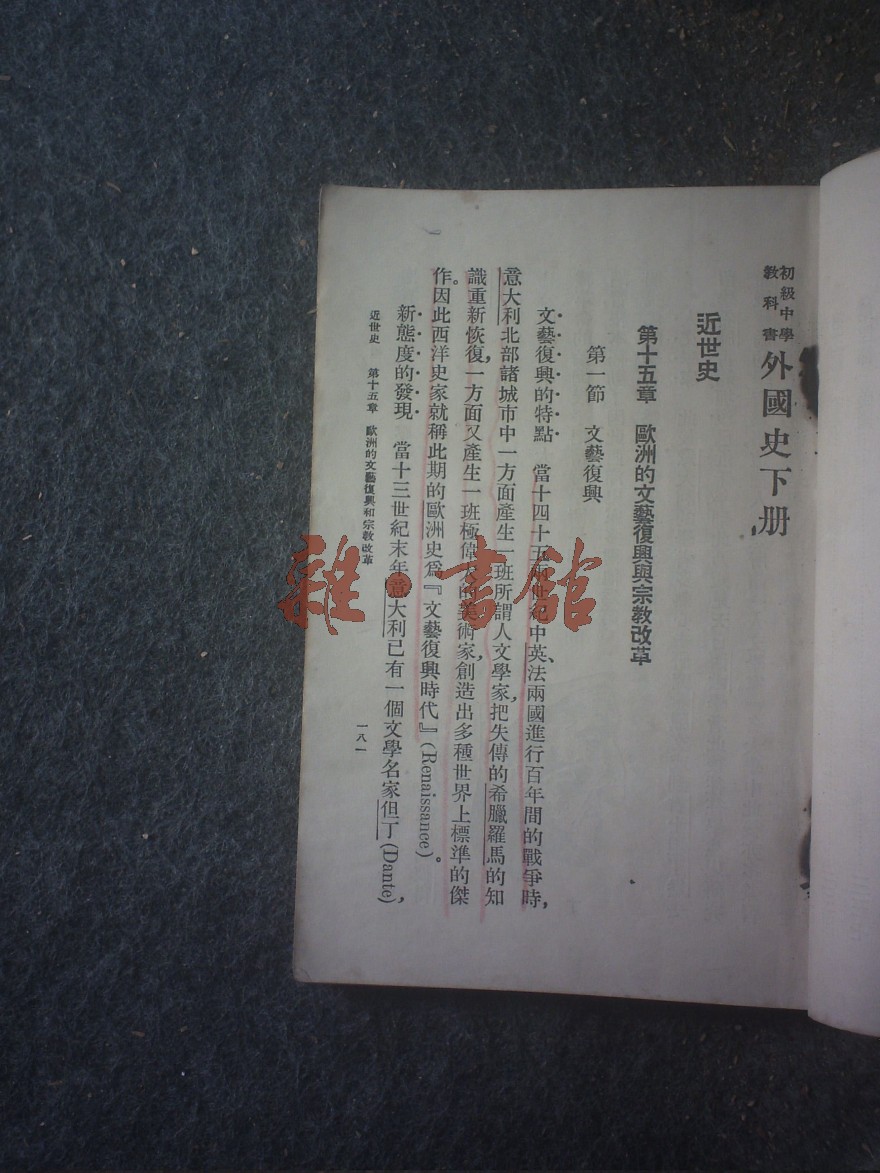 初級中學
教科書
外國史下册
近世史
第十五章　歐洲的文藝復興與宗教改革
第一節　文藝復興
文藝復興的特點　當十四十五兩世紀中英、法兩國進行百年間的戰爭時，
意大利北部諸城市中一方面產生一班所謂人文學家，把失傳的希臘羅馬的知
識重新恢復，一方面又產生一班極偉大的美術家，創造出多種世界上標準的傑
作。因此西洋史家就稱此期的歐洲史爲『文藝復興時代』(Renaissance)。
新態度的發現　當十三世紀末年意大利已有一個文學名家但丁(Dante)，
近世史　第十五章　歐洲的文藝復興和宗教改革
一八一
雜·書館